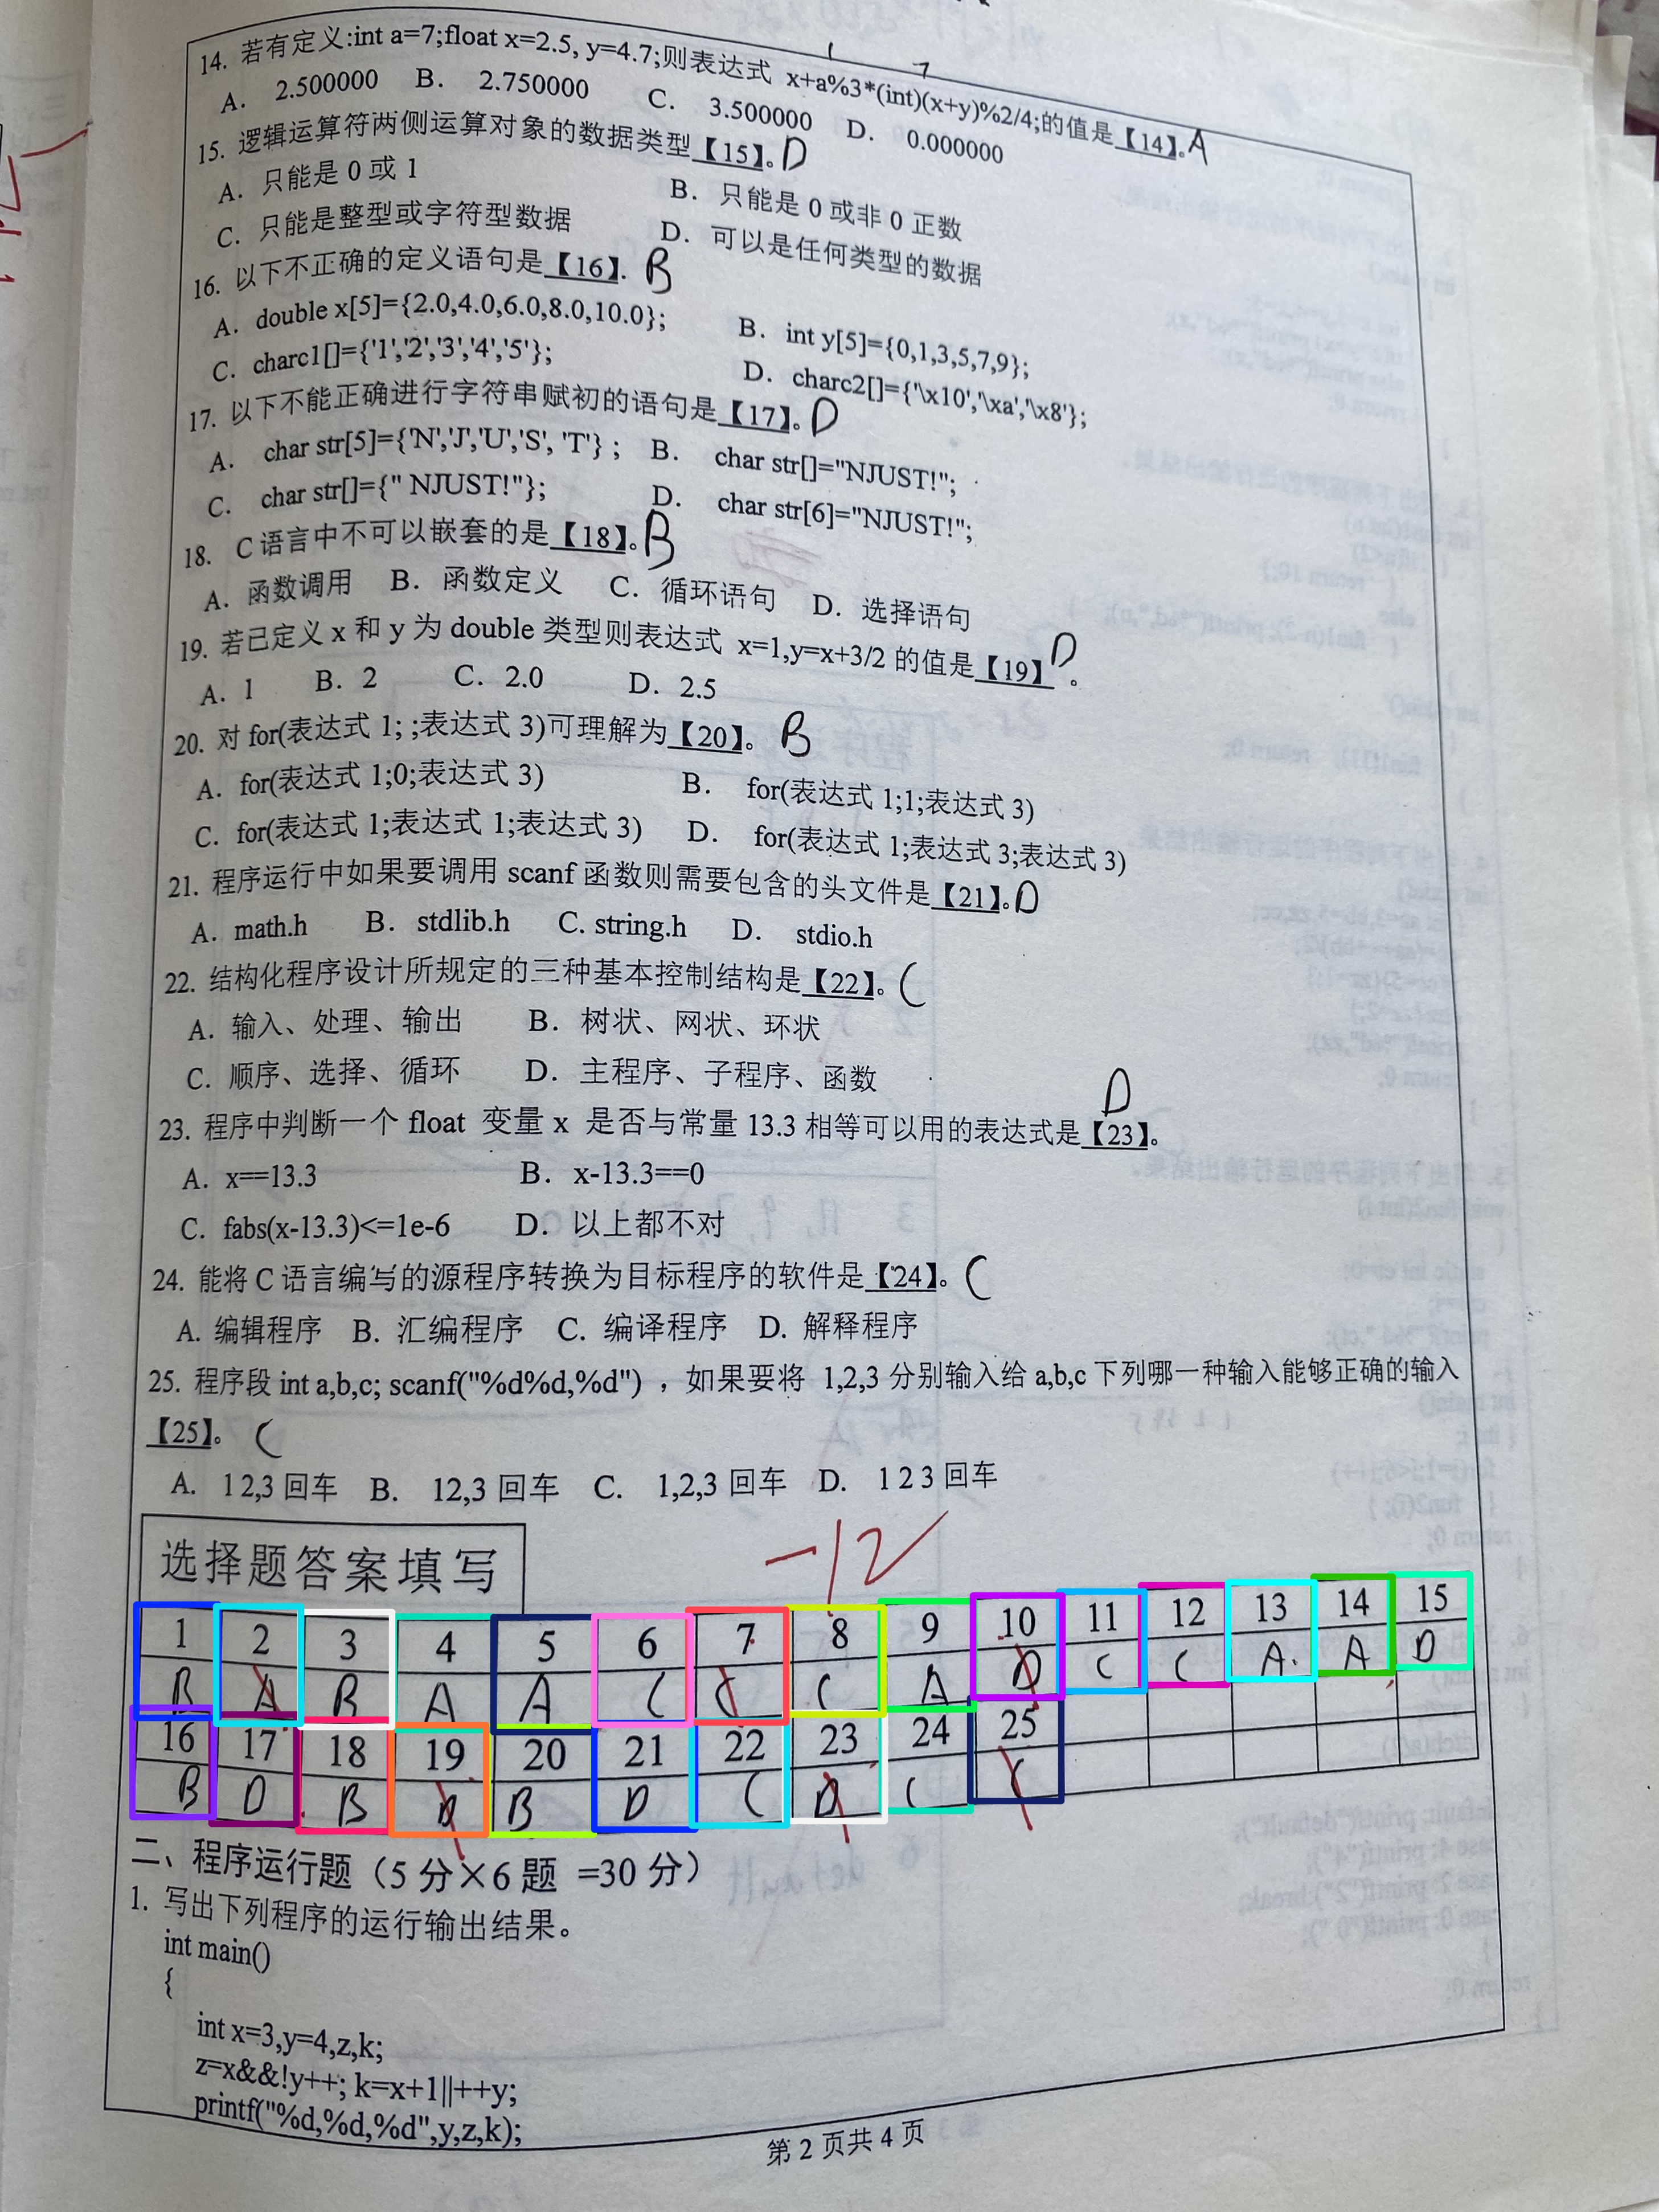 14. 若有定义:int a=7;float x=2.5, y=4.7;则表达式 x+a%3*(int)(x+y)%2/4;的值是【14】。A
1 7
A. 2.500000 B. 2.750000 C. 3.500000 D. 0.000000
15. 逻辑运算符两侧运算对象的数据类型【15】。D
A. 只能是 0 或 1 B. 只能是 0 或非 0 正数
C. 只能是整型或字符型数据 D. 可以是任何类型的数据
16. 以下不正确的定义语句是【16】. B
A. double x[5]={2.0,4.0,6.0,8.0,10.0}; B. int y[5]={0,1,3,5,7,9};
C. charc1[]={'1','2','3','4','5'}; D. charc2[]={'\x10','\xa','\x8'};
17. 以下不能正确进行字符串赋初的语句是【17】。D
A. char str[5]={'N','J','U','S', 'T'} ; B. char str[]="NJUST!";
C. char str[]={" NJUST!"}; D. char str[6]="NJUST!";
18. C 语言中不可以嵌套的是【18】。B
A. 函数调用 B. 函数定义 C. 循环语句 D. 选择语句
19. 若已定义 x 和 y 为 double 类型则表达式 x=1,y=x+3/2 的值是【19】 。D
A. 1 B. 2 C. 2.0 D. 2.5
20. 对 for(表达式 1; ;表达式 3)可理解为【20】。 B
A. for(表达式 1;0;表达式 3) B. for(表达式 1;1;表达式 3)
C. for(表达式 1;表达式 1;表达式 3) D. for(表达式 1;表达式 3;表达式 3)
21. 程序运行中如果要调用 scanf 函数则需要包含的头文件是【21】。D
A. math.h B. stdlib.h C. string.h D. stdio.h
22. 结构化程序设计所规定的三种基本控制结构是【22】。C
A. 输入、处理、输出 B. 树状、网状、环状
C. 顺序、选择、循环 D. 主程序、子程序、函数
23. 程序中判断一个 float 变量 x 是否与常量 13.3 相等可以用的表达式是【23】。D
A. x==13.3 B. x-13.3==0
C. fabs(x-13.3)<=1e-6 D. 以上都不对
24. 能将 C 语言编写的源程序转换为目标程序的软件是【24】。C
A. 编辑程序 B. 汇编程序 C. 编译程序 D. 解释程序
25. 程序段 int a,b,c; scanf("%d%d,%d") ，如果要将 1,2,3 分别输入给 a,b,c 下列哪一种输入能够正确的输入
【25】。 C
A. 1 2,3 回车 B. 12,3 回车 C. 1,2,3 回车 D. 1 2 3 回车
选择题答案填写
-12
1 2 3 4 5 6 7 8 9 10 11 12 13 14 15
B A B A A C C C A D C C A A D
16 17 18 19 20 21 22 23 24 25
B D B D B D C D C C
二、程序运行题（5 分×6 题 =30 分）
1. 写出下列程序的运行输出结果。
int main()
{
int x=3,y=4,z,k;
z=x&&!y++; k=x+1||++y;
printf("%d,%d,%d",y,z,k);
第 2 页共 4 页